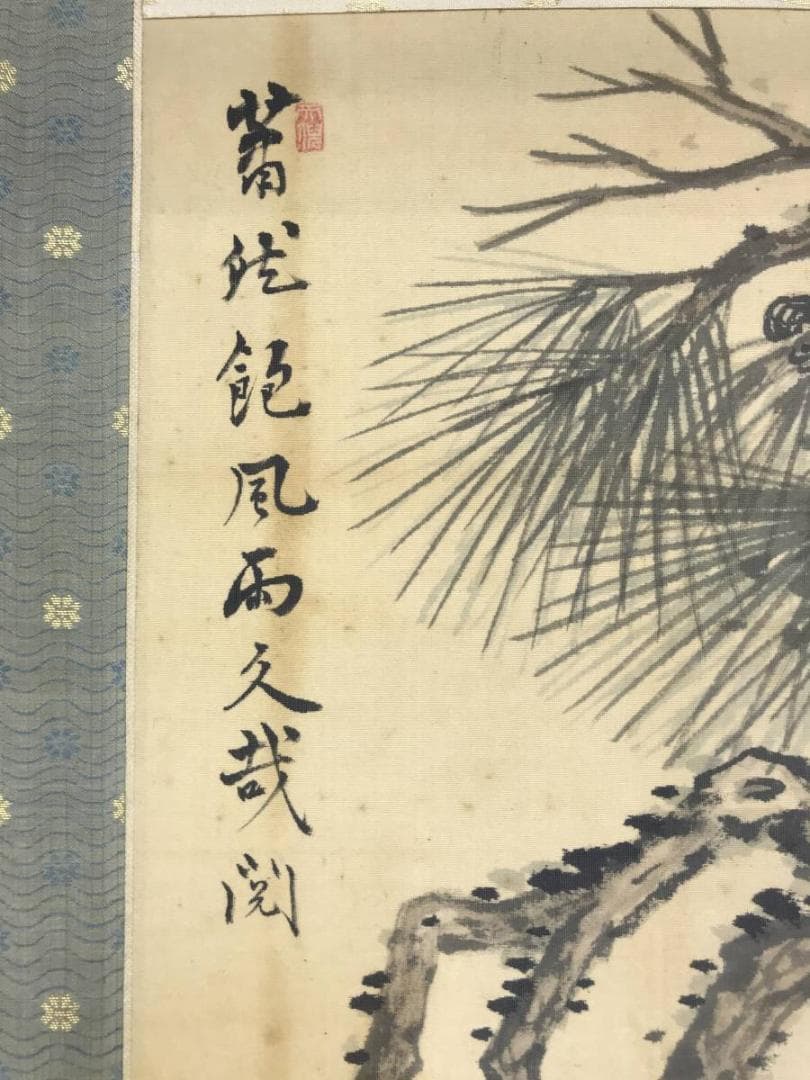 然飽風雨久哉閲